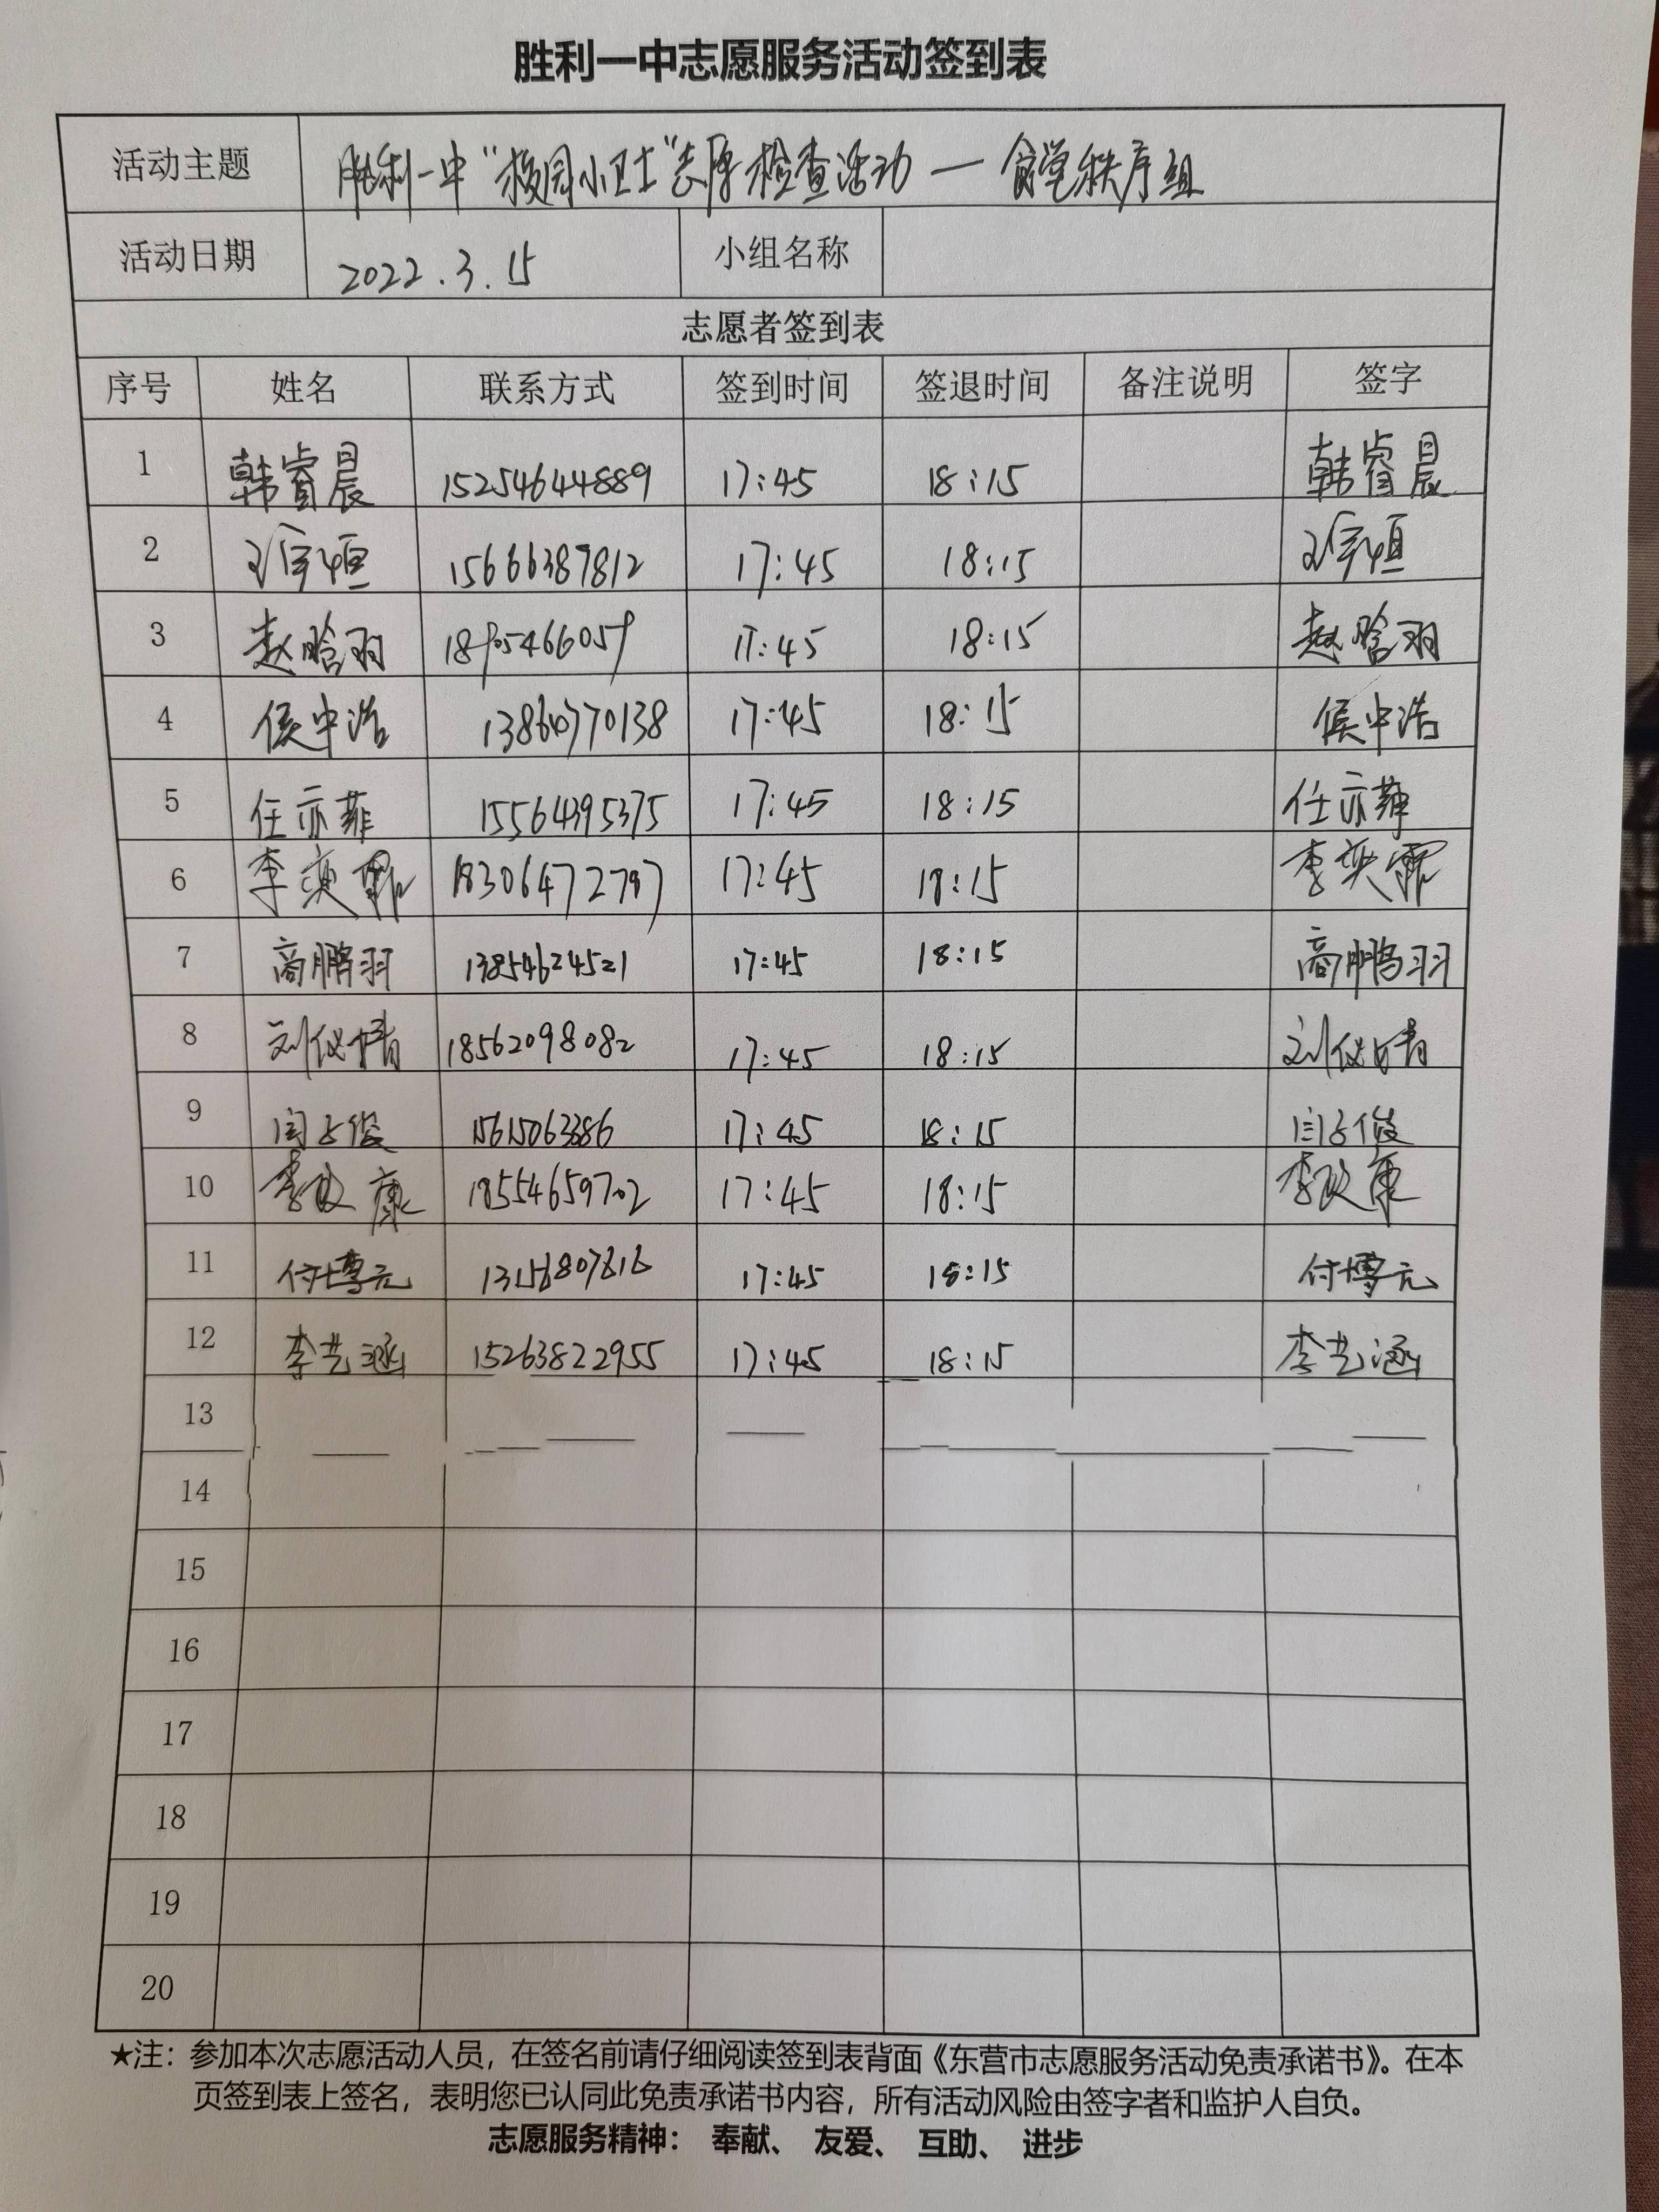 胜利一中志愿服务活动签到表
活动主题 胜利一中“校园小卫士”志愿检查活动 — 食堂秩序组
活动日期 2022.3.15 小组名称
志愿者签到表
序号 姓名 联系方式 签到时间 签退时间 备注说明 签字
1 韩睿晨 15254644889 17:45 18:15 韩睿晨
2 邓宇恒 15666389812 17:45 18:15 邓宇恒
3 赵晗羽 18905466059 17:45 18:15 赵晗羽
4 侯中浩 13860770138 17:45 18:15 侯中浩
5 任亦菲 15564395375 17:45 18:15 任亦菲
6 李奕霏 18306472797 17:45 18:15 李奕霏
7 商鹏羽 13854624521 17:45 18:15 商鹏羽
8 刘仪婧 18562098082 17:45 18:15 刘仪婧
9 闫子俊 15615063386 17:45 18:15 闫子俊
10 李政康 18554659702 17:45 18:15 李政康
11 付博元 17:45 18:15 付博元
12 李艺涵 15263822955 17:45 18:15 李艺涵
13
14
15
16
17
18
19
20
★注：参加本次志愿活动人员，在签名前请仔细阅读签到表背面《东营市志愿服务活动免责承诺书》。在本
页签到表上签名，表明您已认同此免责承诺书内容，所有活动风险由签字者和监护人自负。
志愿服务精神： 奉献、 友爱、 互助、 进步